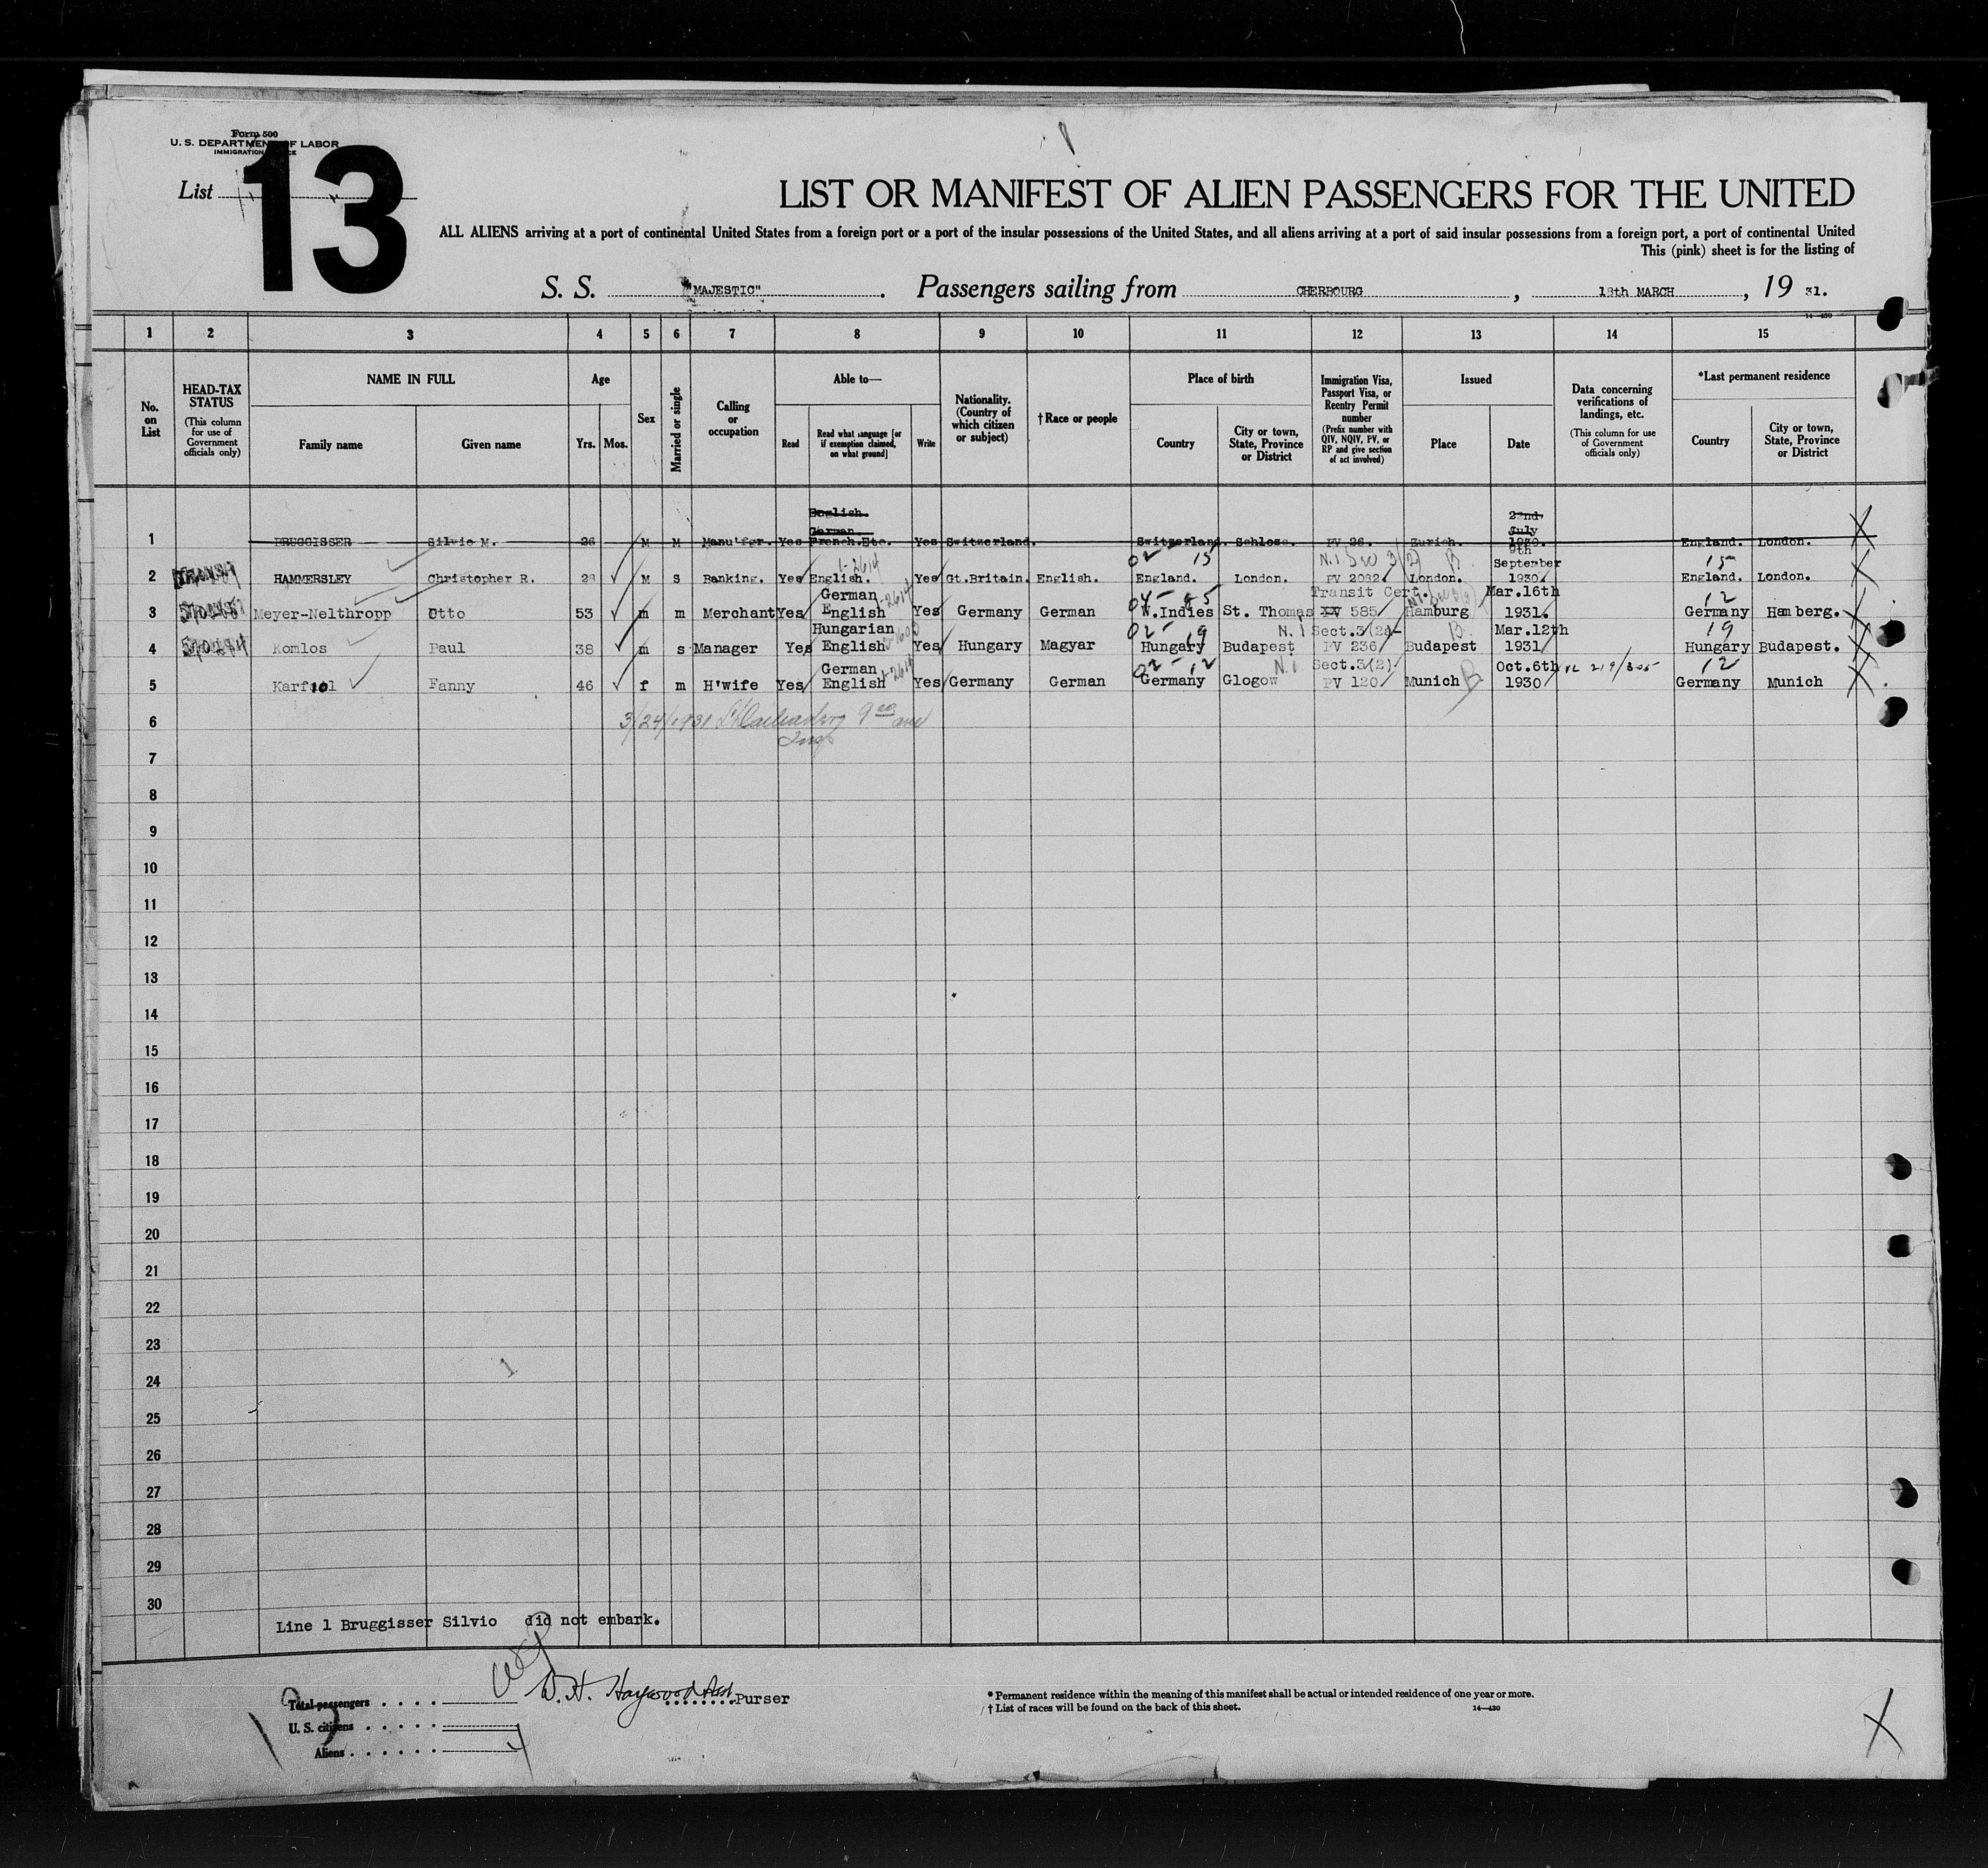 Form 500
U. S. DEPARTMENT OF LABOR
IMMIGRATION
List
13
LIST OR MANIFEST OF ALIEN PASSENGERS FOR THE UNITED
ALL ALIENS arriving at a port of continental United States from a foreign port or a port of the insular possessions of the United States, and all aliens arriving at a port of said insular possessions from a foreign port, a port of continental United
This (pink) sheet is for the listing of
S. S. "MAJESTIC". Passengers sailing from CHERBOURG, 18th MARCH, 19 31.
14—430
1 2 3 4 5 6 7 8 9 10 11 12 13 14 15
No. on List
HEAD-TAX STATUS (This column for use of Government officials only)
NAME IN FULL
Family name Given name
Age
Yrs. Mos.
Sex
Married or single
Calling or occupation
Able to—
Read Read what language [or if exemption claimed, on what ground] Write
Nationality. (Country of which citizen or subject)
†Race or people
Place of birth
Country City or town, State, Province or District
Immigration Visa, Passport Visa, or Reentry Permit number (Prefix number with QIV, NQIV, PV, or RP and give section of act involved)
Issued
Place Date
Data concerning verifications of landings, etc. (This column for use of Government officials only)
*Last permanent residence
Country City or town, State, Province or District
1 BRUGGISSER Silvio M. 26 M M Manu'fgr. Yes English. German. French.Etc. Yes Switzerland. Switzerland. Schloss. PV 26. Zurich. 22nd July 1930. England. London. X
02 15 N.I 3(2) B 15
2 HAMMERSLEY Christopher R. 28 M S Banking. Yes English. 1-2614 Yes Gt.Britain. English. England. London. PV 2082 London. 9th September 1930. England. London. X
04 - 85 Transit Cert. 12
3 Meyer-Nelthropp Otto 53 m m Merchant Yes German English Yes Germany German W.Indies St. Thomas PV 585 Hamburg Mar.16th 1931. Germany Hamberg. X
02 - 19 N.I Sect.3(2) B 19
4 Komlos Paul 38 m s Manager Yes Hungarian English Yes Hungary Magyar Hungary Budapest PV 236 Budapest Mar.12th 1931 Hungary Budapest. X
02 - 12 N.I. Sect.3(2) 12
5 Karfiol Fanny 46 f m H'wife Yes German English 2614 Yes Germany German Germany Glogow PV 120 Munich B Oct.6th 1930 VL 219/305 Germany Munich X
6 3/24/1931 9 00 am
Insp
7
8
9
10
11
12
13
14
15
16
17
18
19
20
21
22
23
24
25
26
27
28
29
30
Line 1 Bruggisser Silvio did not embark.
Total passengers
U. S. citizens
Aliens 4
W. H. Haywood Asst Purser
* Permanent residence within the meaning of this manifest shall be actual or intended residence of one year or more.
† List of races will be found on the back of this sheet. 14—430
X